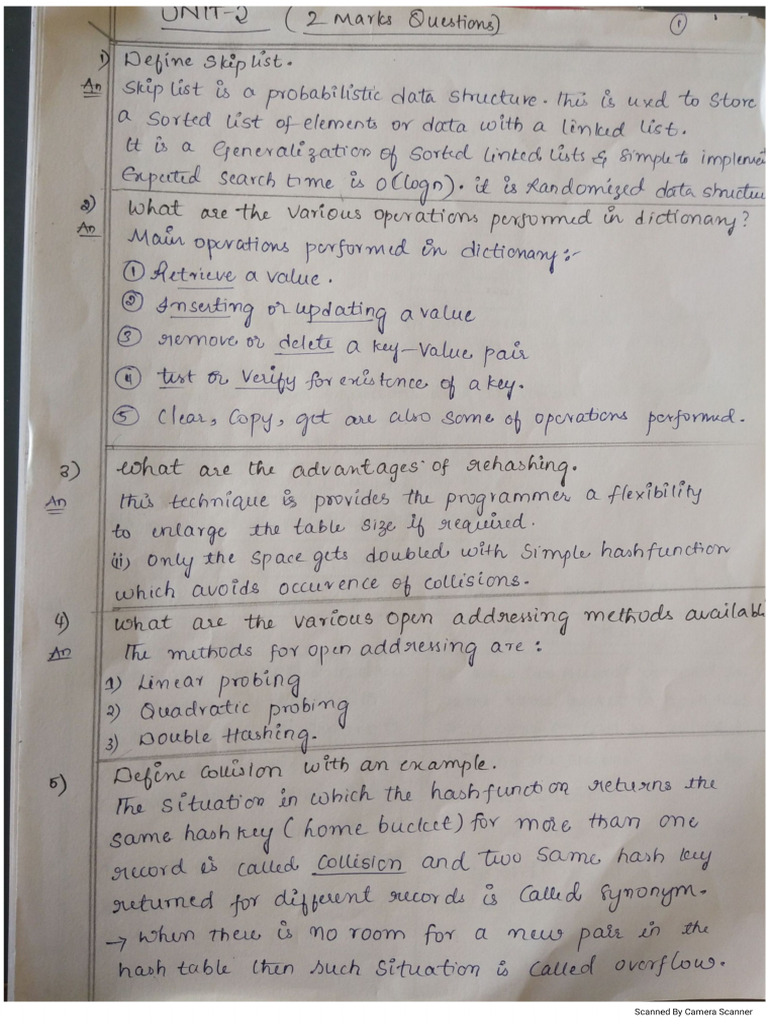 UNIT-2 ( 2 Marks Questions) 1
1) Define Skiplist.
An Skip list is a probabilistic data structure. This is used to store
a Sorted list of elements or data with a linked list.
It is a Generalization of Sorted linked lists & Simple to implemen
Expected Search time is O(logn). it is Randomized data structu
2) What are the various operations performed in dictionary?
An Main operations performed in dictionary:-
① Retrieve a value.
② Inserting or updating a value
③ remove or delete a key-value pair
④ test or verify for existence of a key.
⑤ Clear, Copy, get are also some of operations performed.
3) What are the advantages of rehashing.
An This technique is provides the programmer a flexibility
to enlarge the table size if required.
(ii) Only the space gets doubled with simple hashfunction
which avoids occurence of collisions.
4) What are the various open addressing methods availabl
An The methods for open addressing are:
1) Linear probing
2) Quadratic probing
3) Double Hashing.
5) Define Collision with an example.
The situation in which the hashfunction returns the
same hashkey (home bucket) for more than one
record is called Collision and two same hash key
returned for different records is called Synonym.
→ When there is no room for a new pair in the
hash table then such situation is called overflow.
Scanned By Camera Scanner